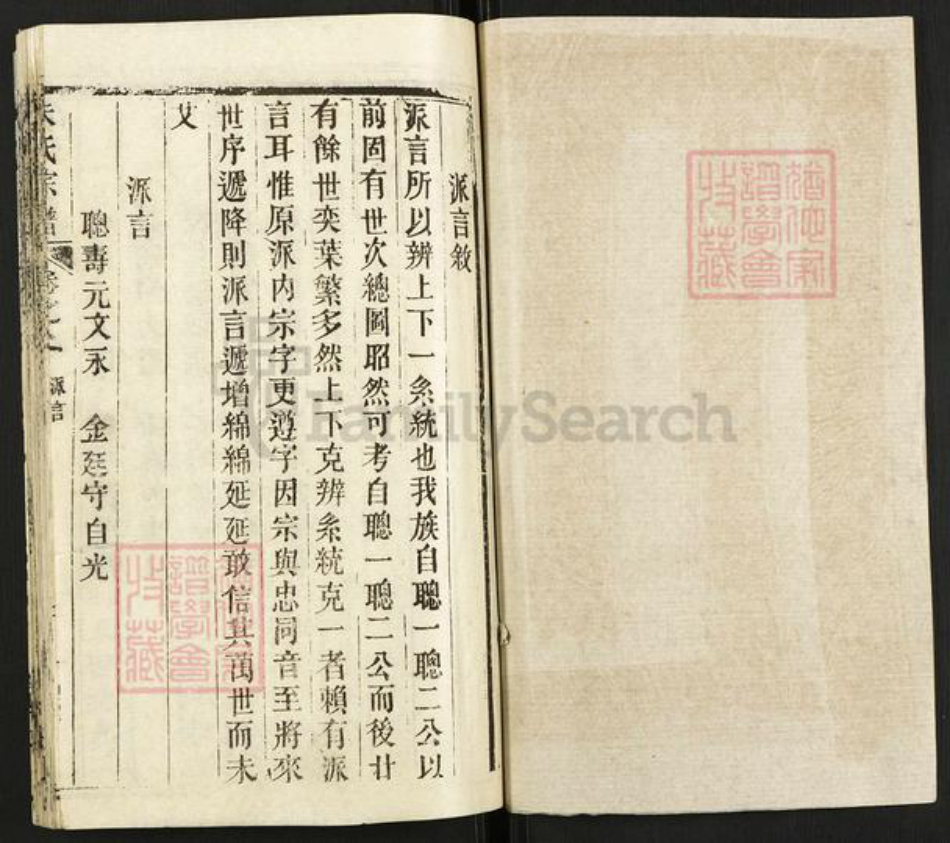 派言敘
派言所以辨上下一系統也我族自聰一聰二公以
前固有世次總圖昭然可考自聰一聰二公而後廿
有餘世奕葉繁多然上下克辨系統克一者賴有派
言耳惟原派内宗字更遵字因宗與忠同音至將來
世序遞降則派言遞增綿綿延延敢信其萬世而未
艾
派言
聰壽元文永 金廷守自光
朱氏宗譜
派言
譜學會
收藏
FamilySearch
譜學會
收藏